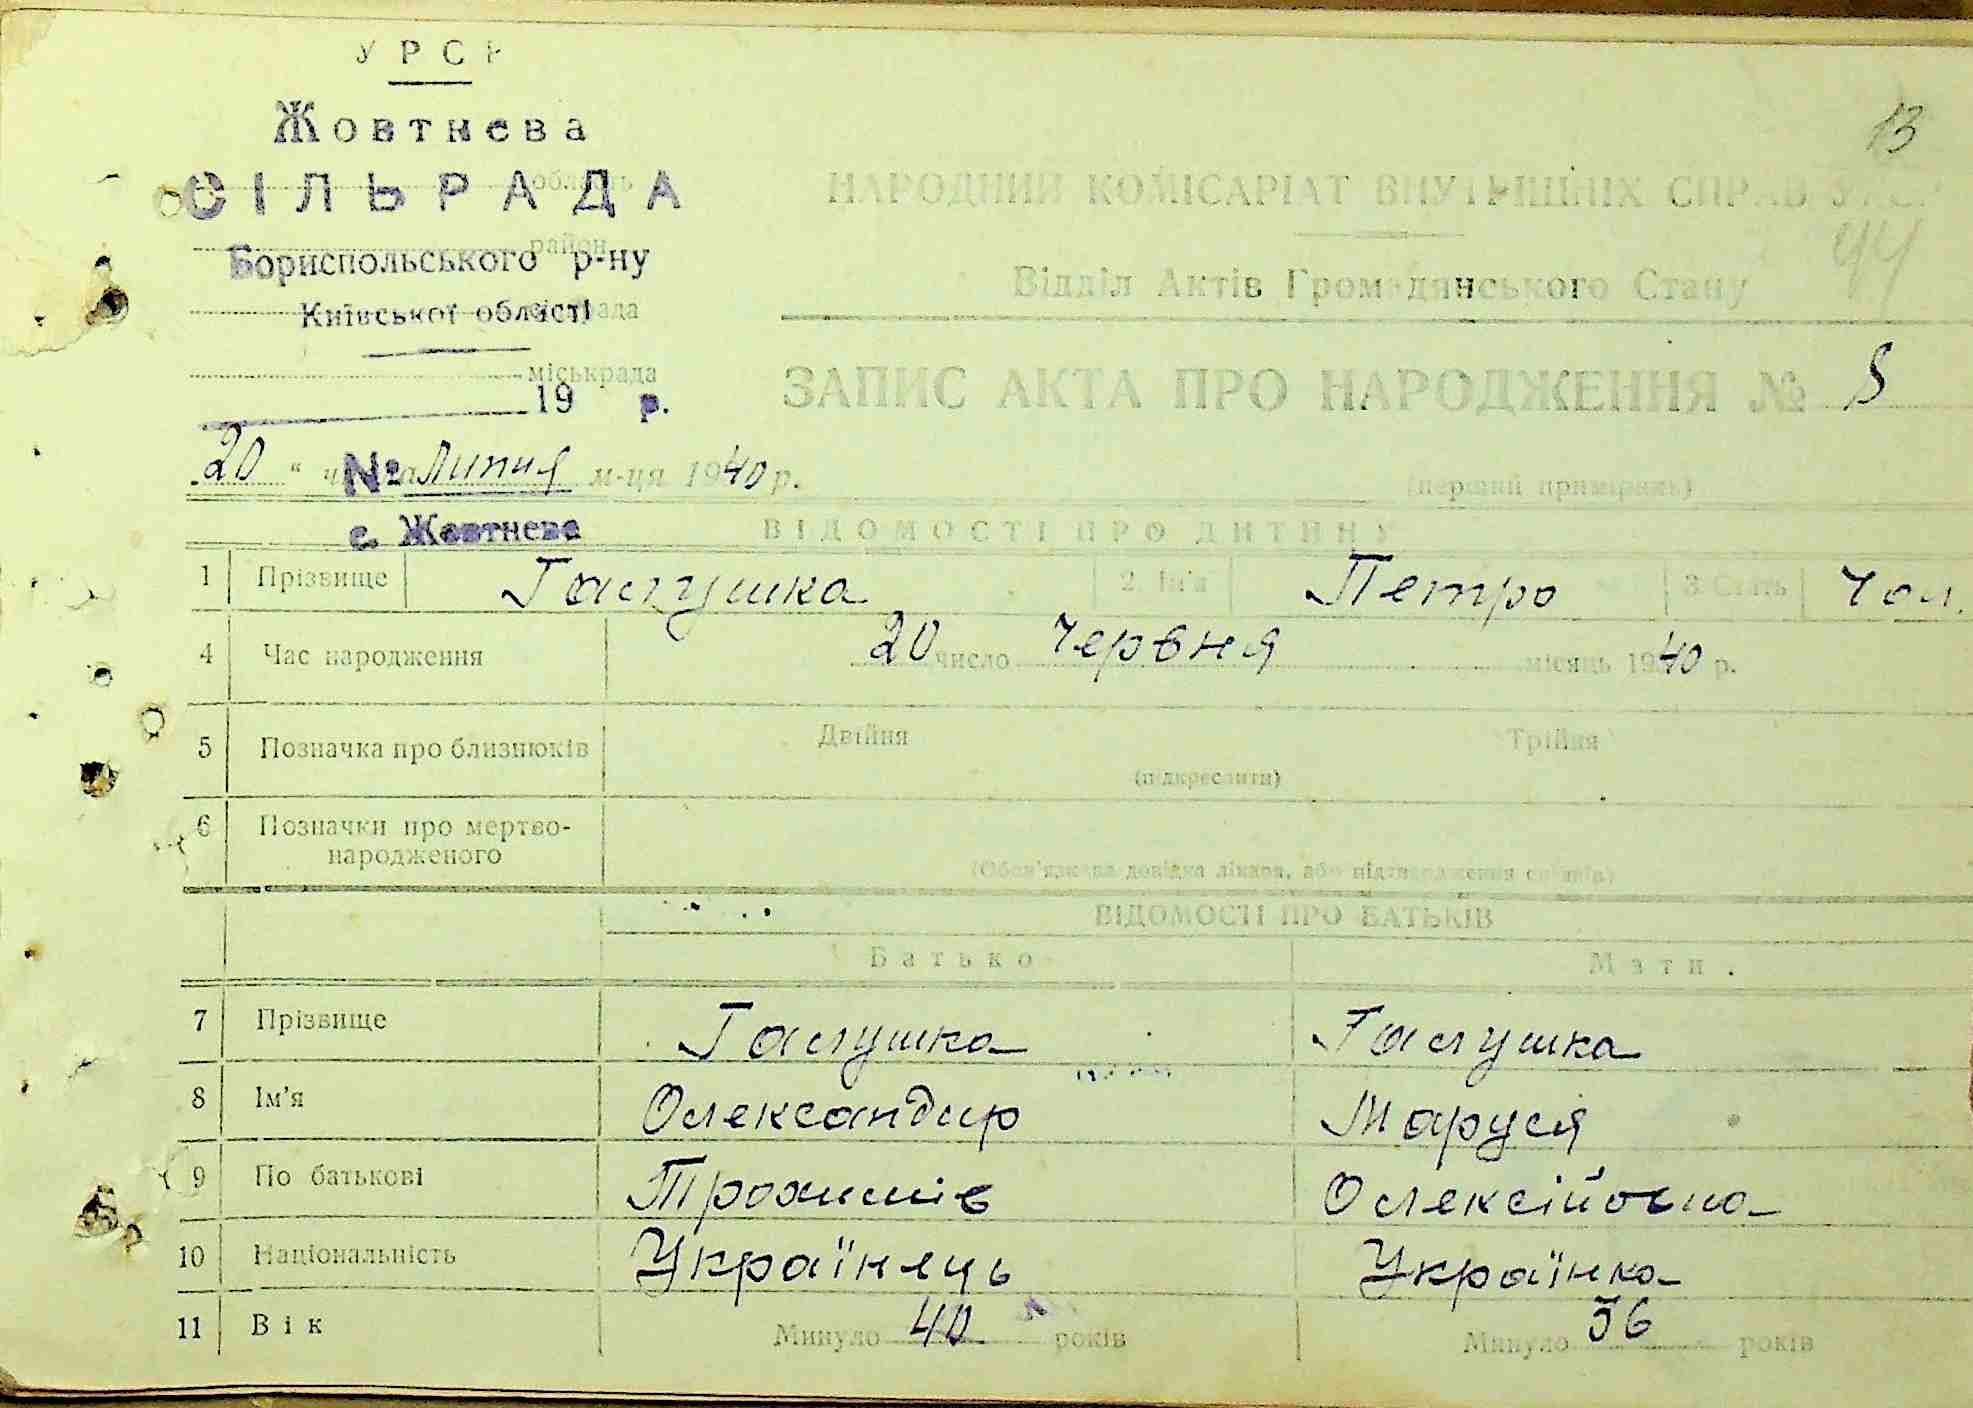 УРСР
Жовтнева
СІЛЬРАДА
область
Бориспольського р-ну
район
Київської області
міськрада
19 р.
№
с. Жовтнева
13
44
НАРОДНИЙ КОМІСАРІАТ ВНУТРІШНІХ СПРАВ УРСР
Відділ Актів Громадянського Стану
ЗАПИС АКТА ПРО НАРОДЖЕННЯ № 5
20 " числа Липня м-ця 1940 р.
(перший примірник)
ВІДОМОСТІ ПРО ДИТИНУ
1 Прізвище Галушка 2. Ім'я Петро 3. Стать Чол.
4 Час народження 20 число Червня місяць 1940 р.
5 Позначка про близнюків Двійня Трійня
(підкреслити)
6 Позначки про мертво-
народженого
(Обов'язкова довідка лікаря, або підтвердження свідків)
ВІДОМОСТІ ПРО БАТЬКІВ
Батько Мати
7 Прізвище Галушка Галушка
8 Ім'я Олександир Маруся
9 По батькові Трохимів Олексійовна
10 Національність Українець Українка
11 Вік Минуло 40 років Минуло 36 років